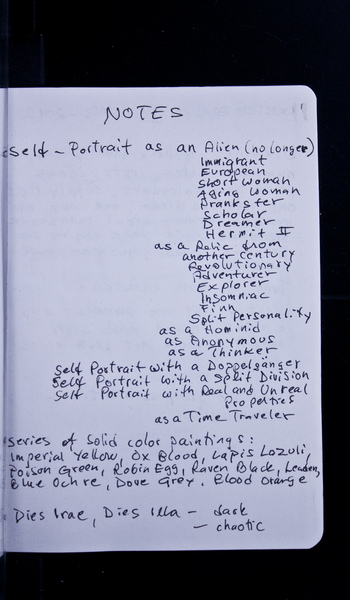 NOTES
Self - Portrait as an Alien (no longer)
Immigrant
European
Short Woman
Aging Woman
Prankster
Scholar
Dreamer
Hermit II
as a Relic from
another century
Revolutionary
Adventurer
Explorer
Insomniac
Finn
Split Personality
as a Hominid
as Anonymous
as a Thinker
Self Portrait with a Doppelgänger
Self Portrait with a Split Division
Self Portrait with Real and Unreal
Properties
as a Time Traveler
Series of Solid color paintings:
Imperial Yellow, Ox Blood, Lapis Lozuli,
Poison Green, Robin Egg, Raven Black, Leaden,
Blue Ochre, Dove Grey, Blood Orange
Dies Irae, Dies Illa - dark
- chaotic